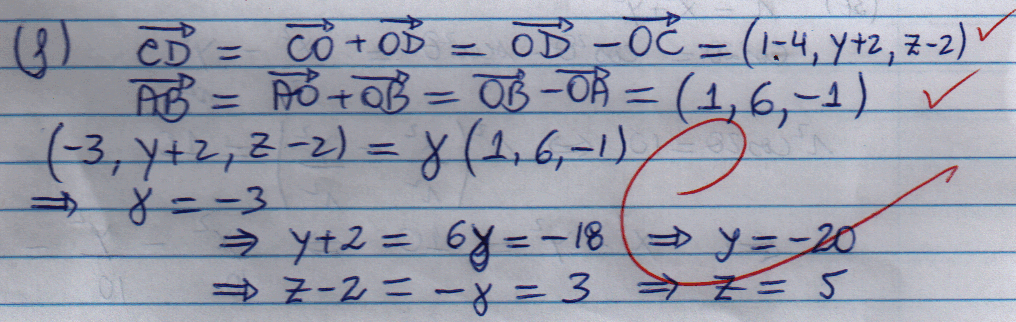 (f) CD = CO + OD = OD - OC = (1-4, y+2, z-2) ✓
AB = AO + OB = OB - OA = (1, 6, -1) ✓
(-3, y+2, z-2) = γ(1, 6, -1)
⇒ γ = -3
⇒ y+2 = 6γ = -18 ⇒ y = -20
⇒ z-2 = -γ = 3 ⇒ z = 5